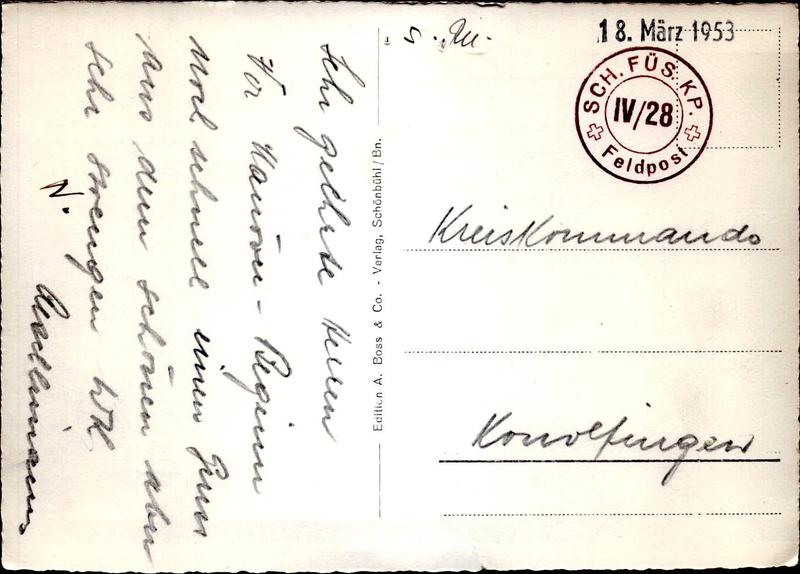 Sehr geehrte Herren
Vor Manöver-Beginn
noch schnell einen Gruss
aus dem schönen aber
sehr strengen WK
N.
Edition A. Boss & Co. - Verlag, Schönbühl/Bn.
18. März 1953
SCH. FÜS. KP.
IV/28
Feldpost
Kreiskommando
Konolfingen